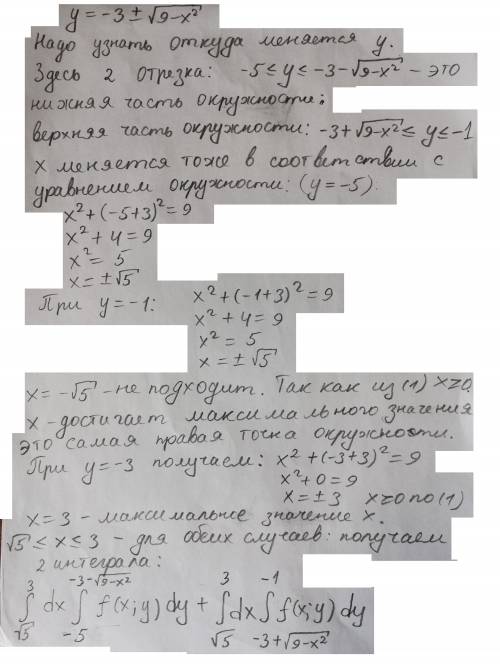 y = -3 ± √(9-x²)
Надо узнать откуда меняется y.
Здесь 2 отрезка: -5 ≤ y ≤ -3-√(9-x²) - это
нижняя часть окружности;
верхняя часть окружности: -3+√(9-x²) ≤ y ≤ -1
x меняется тоже в соответствии с
уравнением окружности: (y=-5).
x² + (-5+3)² = 9
x² + 4 = 9
x² = 5
x = ±√5
При y=-1: x² + (-1+3)² = 9
x² + 4 = 9
x² = 5
x = ±√5
x = -√5 - не подходит. Так как из (1) x≥0.
x - достигает максимального значения
это самая правая точка окружности.
При y=-3 получаем: x² + (-3+3)² = 9
x² + 0 = 9
x = ±3 x≥0 по (1)
x = 3 - максимальное значение x.
√5 ≤ x ≤ 3 - для обеих случаев: получаем
2 интеграла:
3 -3-√(9-x²) 3 -1
∫ dx ∫ f(x;y) dy + ∫ dx ∫ f(x;y) dy
√5 -5 √5 -3+√(9-x²)